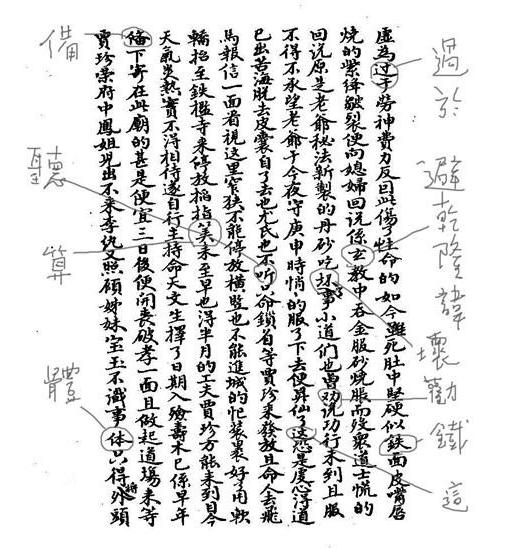 過於
避乾隆諱
壞
勸
鐵
這
虛為过于勞神費力反因此傷了性命的如今雖死肚中堅硬似鉄面皮嘴唇
燒的紫絳皺裂便向媳婦回说係玄教中吞金服砂燒服而歿衆道士慌的
回说原是老爺秘法新製的丹砂吃坏了事小道們也曾劝说功行未到且服
不得不承望老爺于今夜守庚申時悄的服了下去便昇仙了这恐是虔心得道
已出苦海脱去皮囊自了去也尤氏也不听只命鎖首等賈珍来發放且命人去飛
馬報信一面看視这里窄狹不能停放橫竪也不能進城的忙装裹好了用軟
轎抬至鉄檻寺来停放搯指笇来至早也得半月的工夫賈珍方能来到目今
天氣炎熱實不得相待遂自行主持命天文生擇了日期入殮壽木已係早年
俻下寄在此廟的甚是便宜三日後便開丧破孝一面且做起道場来等
賈珍榮府中鳳姐兒出不来李纨又照顧姊妹宝玉不識事体只得將外頭
備
聽
算
體